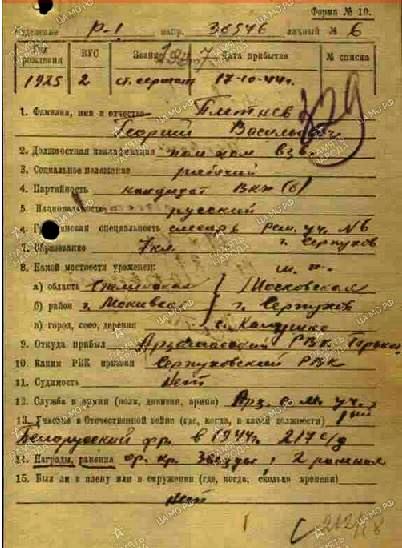 Форма № 10.
Р-1 напр. 36546 личный № 6
Год рождения ВУС Звание Дата прибытия № списка
1925 2 ст. сержант 17-10-44 г.
329
1. Фамилия, имя и отчество Плетнев
Георгий Васильевич
2. Должностная квалификация пом ком взв.
3. Социальное положение рабочий
4. Партийность кандидат ВКП(б)
5. Национальность русский
6. Гражданская специальность слесарь Рем. уч. №6
7. Образование 7 кл. г. Серпухов
8. Какой местности уроженец:
а) область Смоленская Московская
б) район г. Серпухов
в) город, село, деревня
9. Откуда прибыл РВК
10. Каким РВК призван Серпуховский РВК
11. Судимость нет
12. Служба в армии (полк, дивизия, армия)
13. Участие в Отечественной войне (где, когда, в какой должности)
Белорусский фр. в 1944 г. 217 с/д
14. Награды, ранения ор. кр. Звезды; 2 ранения
15. Был ли в плену или в окружении (где, когда, сколько времени)
нет